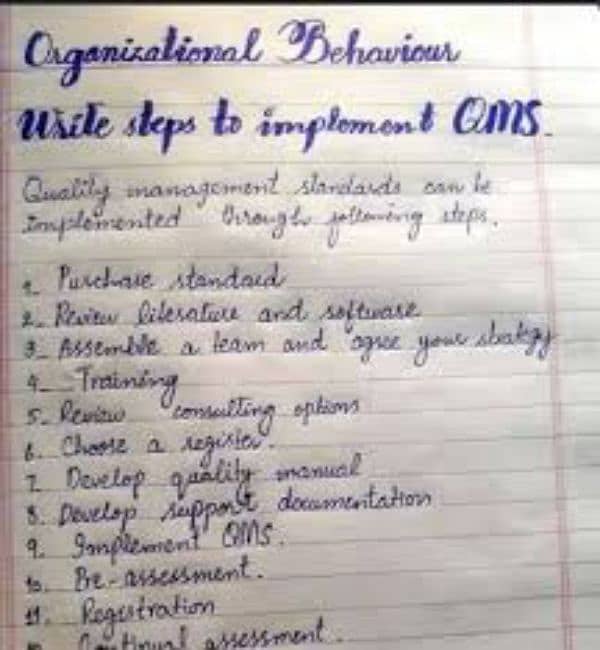 Organizational Behaviour
Write steps to implement QMS.
Quality management standards can be
implemented through following steps.
1. Purchase standard
2. Review literature and software
3. Assemble a team and agree your strategy
4. Training
5. Review consulting options
6. Choose a register.
7. Develop quality manual
8. Develop support documentation
9. Implement QMS.
10. Pre-assessment.
11. Registration
12. Continual assessment.